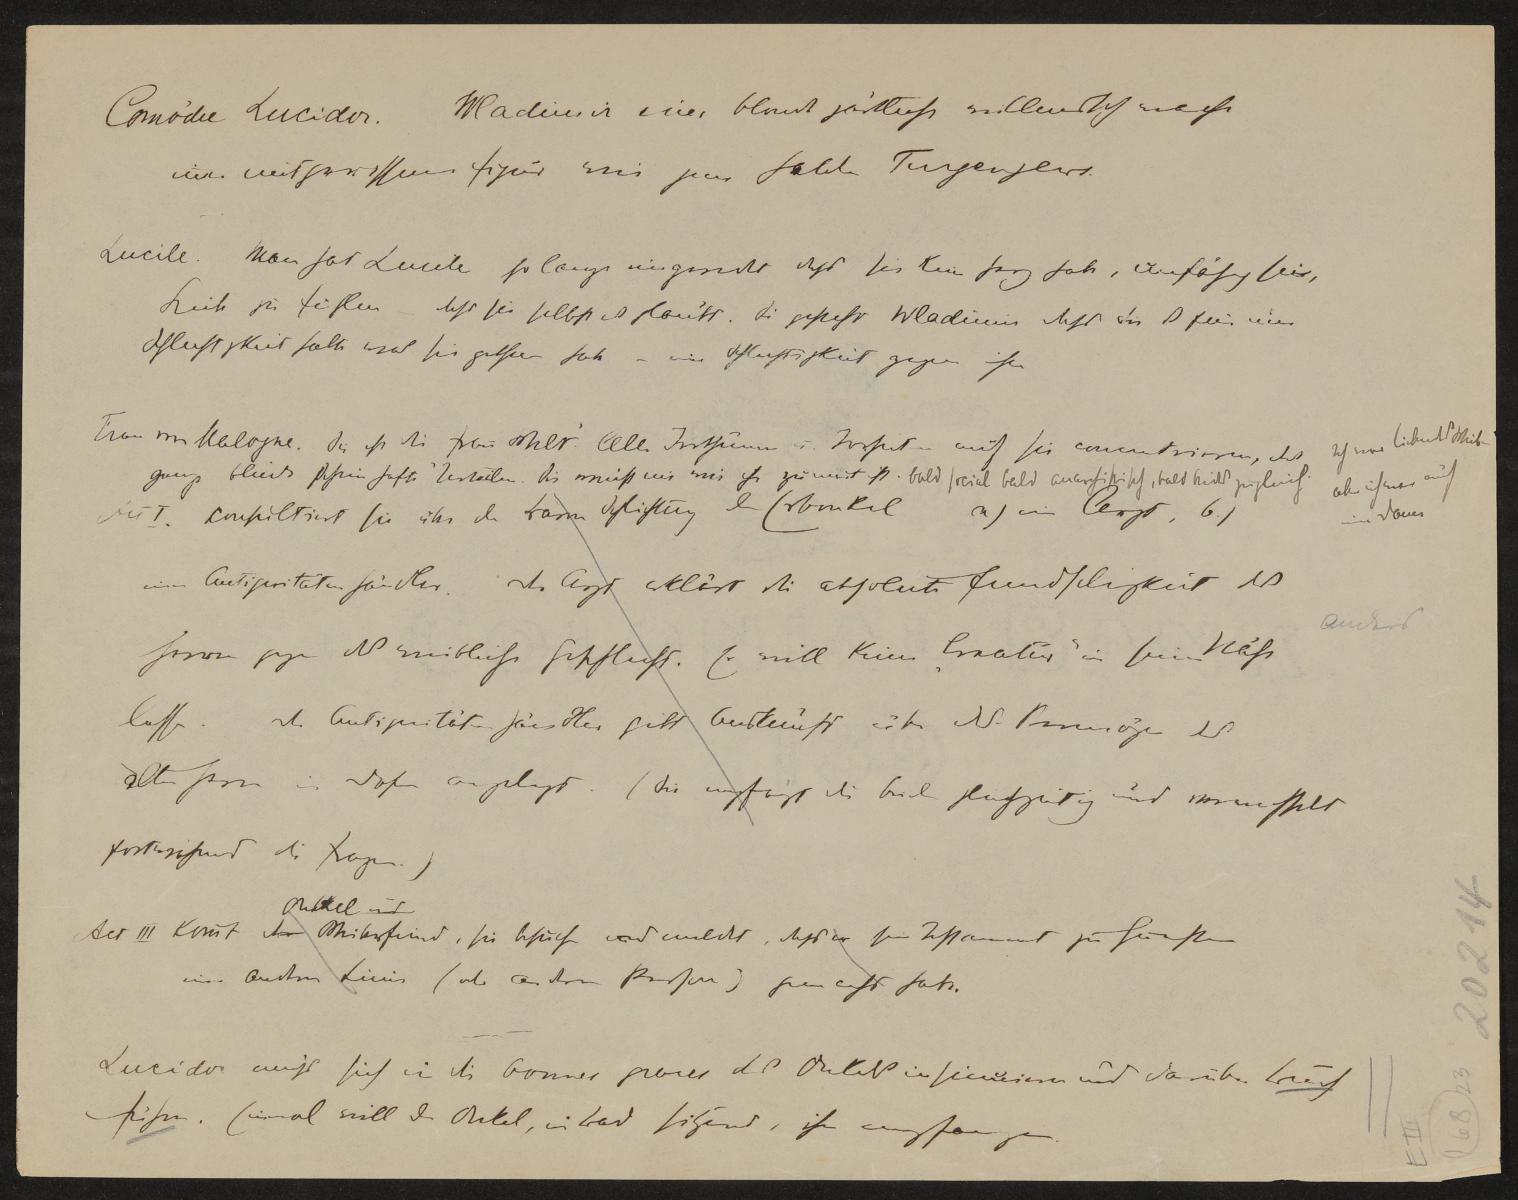 Comödie Lucidor. Wladimir eine blonde zärtliche willensschwache
eine mitgerissene Figur wie jene Helden Turgenjews.
Lucile. Man hat Lucile so lange eingeredet dass sie kein Herz habe, unfähig sei,
Liebe zu fühlen – dass sie selbst es glaubt. Sie gesteht Wladimir dass sie es für eine
Schlechtigkeit halte was sie gethan habe – eine Schlechtigkeit gegen ihn
Frau von Malogne. Sie ist die Frau Alle Irrthümer u. auf sie concentrieren, das
ganz blinde Urteilen. Sie weiss nie wie ihr zumut ist. bald social bald anarchistisch, bald beides zugleich.
Act I. Consultiert sie über den Baron Schlichting den Erbonkel a) ein Arzt, b.)
ein Antiquitätenhändler. der Arzt erklärt die absolute Feindseligkeit des
Herren gegen das weibliche Geschlecht. Er will keine „Creatur" in seine Nähe
anders
lassen. der Antiquitätenhändler gibt Auskunft über das Vermögen des
alten Herren in angelegt. (Sie empfängt die beiden gleichzeitig und verwechselt
fortwährend die Fragen.)
Onkel und
Act III kommt der Weiberfeind, sie besuchen und meldet, dass er sein Testament zu Gunsten
einer anderen Linie (oder anderen Person) gemacht habe.
Lucidor muss sich in die bonnes graces des Onkels insinuieren und darüber Buch
führen. Einmal will der Onkel, im Bad sitzend, ihn empfangen.
20214
E III
168/23